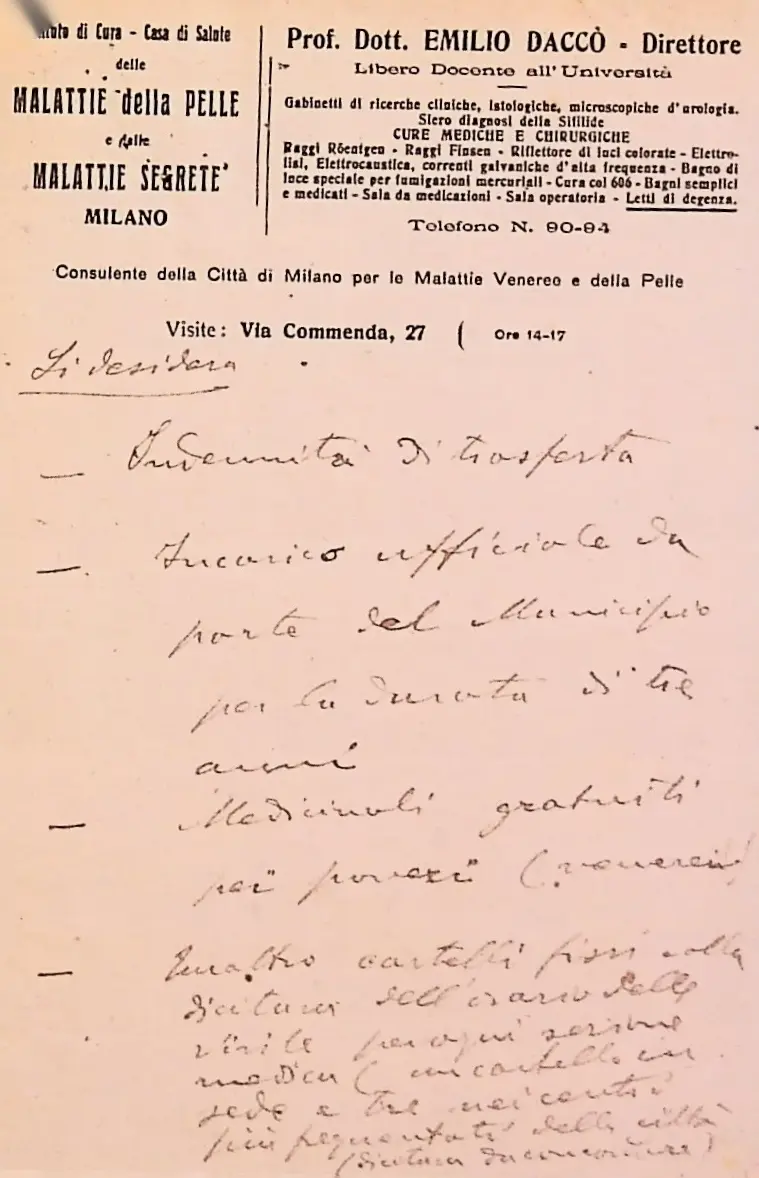 di Cura - Casa di Salute
delle
MALATTIE della PELLE
e delle
MALATTIE SEGRETE
MILANO
Prof. Dott. EMILIO DACCÒ - Direttore
Libero Docente all' Università
Gabinetti di ricerche cliniche, istologiche, microscopiche d'urologia.
Siero diagnosi della Sifilide
CURE MEDICHE E CHIRURGICHE
Raggi Röentgen - Raggi Finsen - Riflettore di luci colorate - Elettro-
lisi, Elettrocaustica, correnti galvaniche d'alta frequenza - Bagno di
luce speciale per fumigazioni mercuriali - Cura col 606 - Bagni semplici
e medicati - Sala da medicazioni - Sala operatoria - Letti di degenza.
Telefono N. 90-94
Consulente della Città di Milano per le Malattie Veneree e della Pelle
Visite: Via Commenda, 27 ( Ore 14-17
Si desidera
— Indennità di trasferta
— Incarico ufficiale da
parte del Municipio
per la durata di tre
anni
— Medicinali gratuiti
pei poveri (venerei)
— Quattro cartelli fissi colla
dicitura dell'orario delle
visite per ogni sezione
medica (un cartello in
sede e tre nei centri
più frequentati della città
(dicitura da concordare)